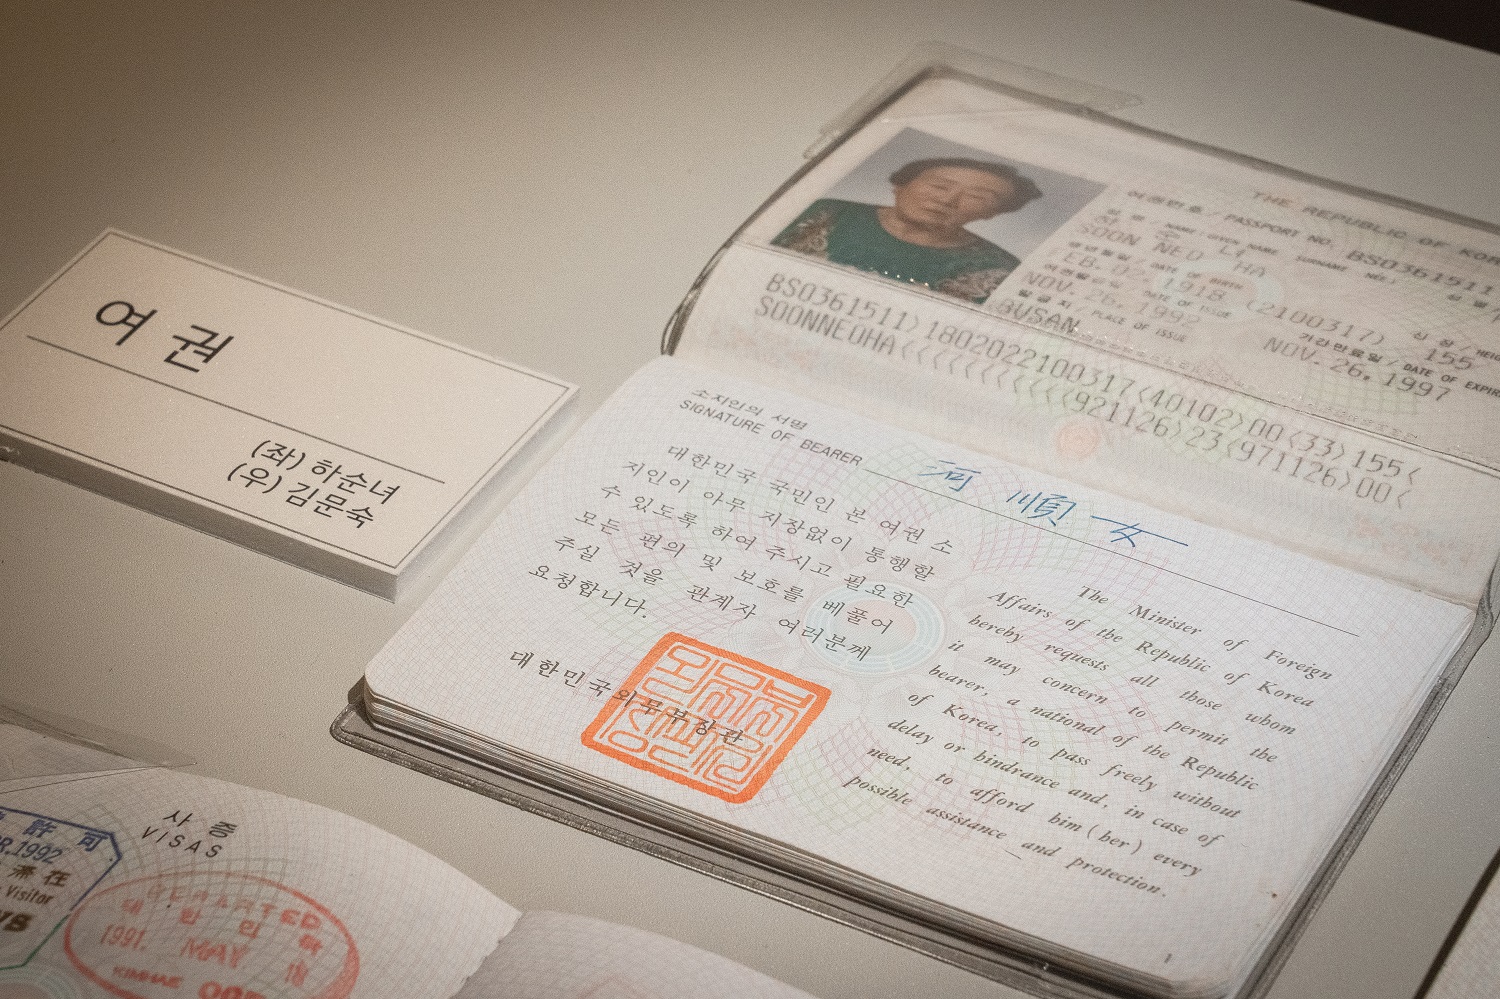 여 권
(좌) 하순녀
(우) 김문숙
THE REPUBLIC OF KOR
여권번호 / PASSPORT NO. BS0361511
성 명 / NAME / GIVEN NAME SURNAME
하 순 녀
SOON NEO HA
생년월일 / DATE OF BIRTH
FEB. 02. 1918 (2100317) 155
여권발급일 / DATE OF ISSUE 기간만료일 / DATE OF EXPIR
NOV. 26, 1992 NOV. 26, 1997
발급지 / PLACE OF ISSUE
BUSAN
BS0361511>1802022100317<40102>00<33>155<
SOONNEOHA<<<<<<<<<<<<<<921126>23<971126>00<
소지인의 서명
SIGNATURE OF BEARER 河 順 女
대한민국 국민인 본 여권 소
지인이 아무 지장없이 통행할
수 있도록 하여 주시고 필요한
모든 편의 및 보호를 베풀어
주실 것을 관계자 여러분께
요청합니다.
대한민국외무부장관
The Minister of Foreign
Affairs of the Republic of Korea
hereby requests all those whom
it may concern to permit the
bearer, a national of the Republic
of Korea, to pass freely without
delay or hindrance and, in case of
need, to afford him (her) every
possible assistance and protection.
1
사 증
VISAS
許 可
R.1992
滞 在
Visitor
DEPARTED
대 한 민 국
1991. MAY. 18
KIMHAE